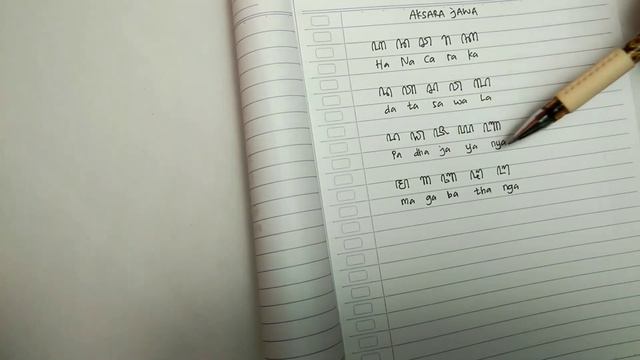 AKSARA JAWA
ꦲ ꦤ ꦕ ꦫ ꦏ
Ha Na Ca ra ka
ꦢ ꦠ ꦱ ꦮ ꦭ
da ta sa wa La
ꦥ ꦝ ꦗ ꦪ ꦚ
Pa dha ja ya nya
ꦩ ꦒ ꦧ ꦛ ꦔ
ma ga ba tha nga